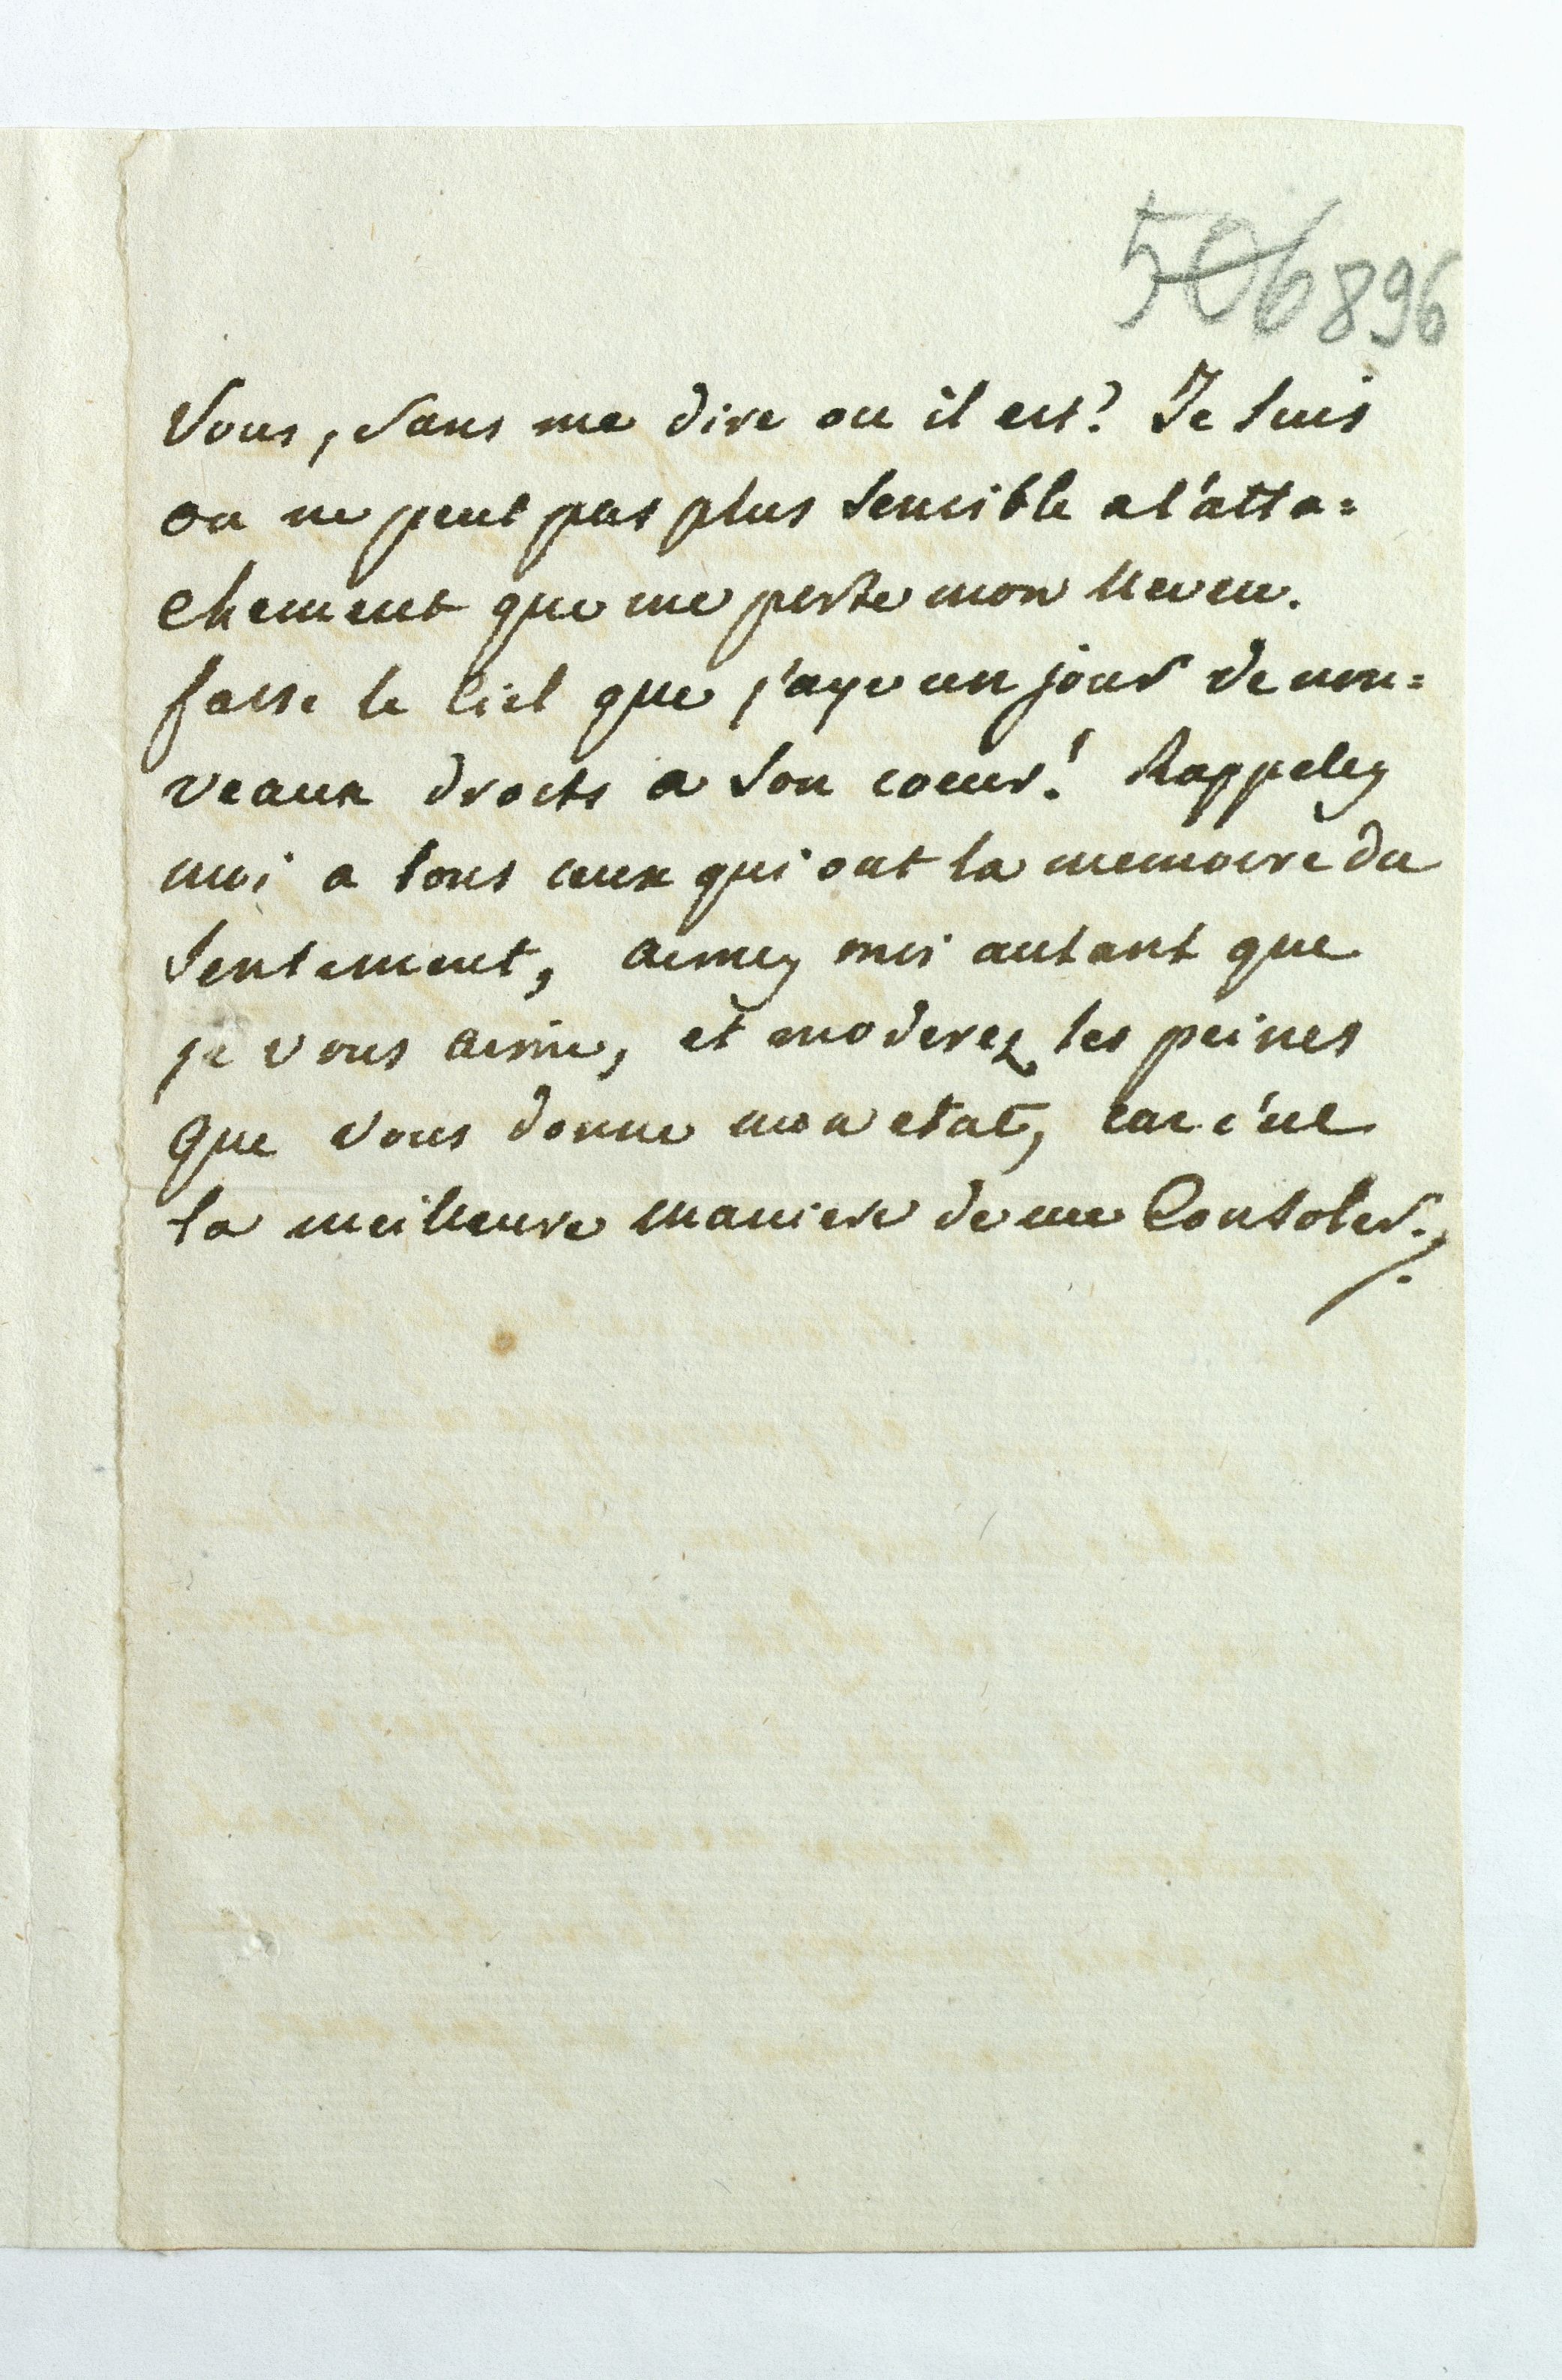 506 896
Vous, sans me dire ou il est? Je suis
on ne peut pas plus sensible a l'atta=
chement que me porte mon neveu.
fasse le Ciel que j'aye un jour de nou=
veaux droits a son coeur! Rappeley
moi a tous ceux qui ont la memoire du
sentiment, aimey moi autant que
je vous aime, et moderez les peines
que vous donne mon etat, car c'est
la meilleure maniere de me Consoler./.